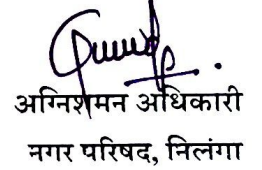 अग्निशमन अधिकारी
नगर परिषद, निलंगा